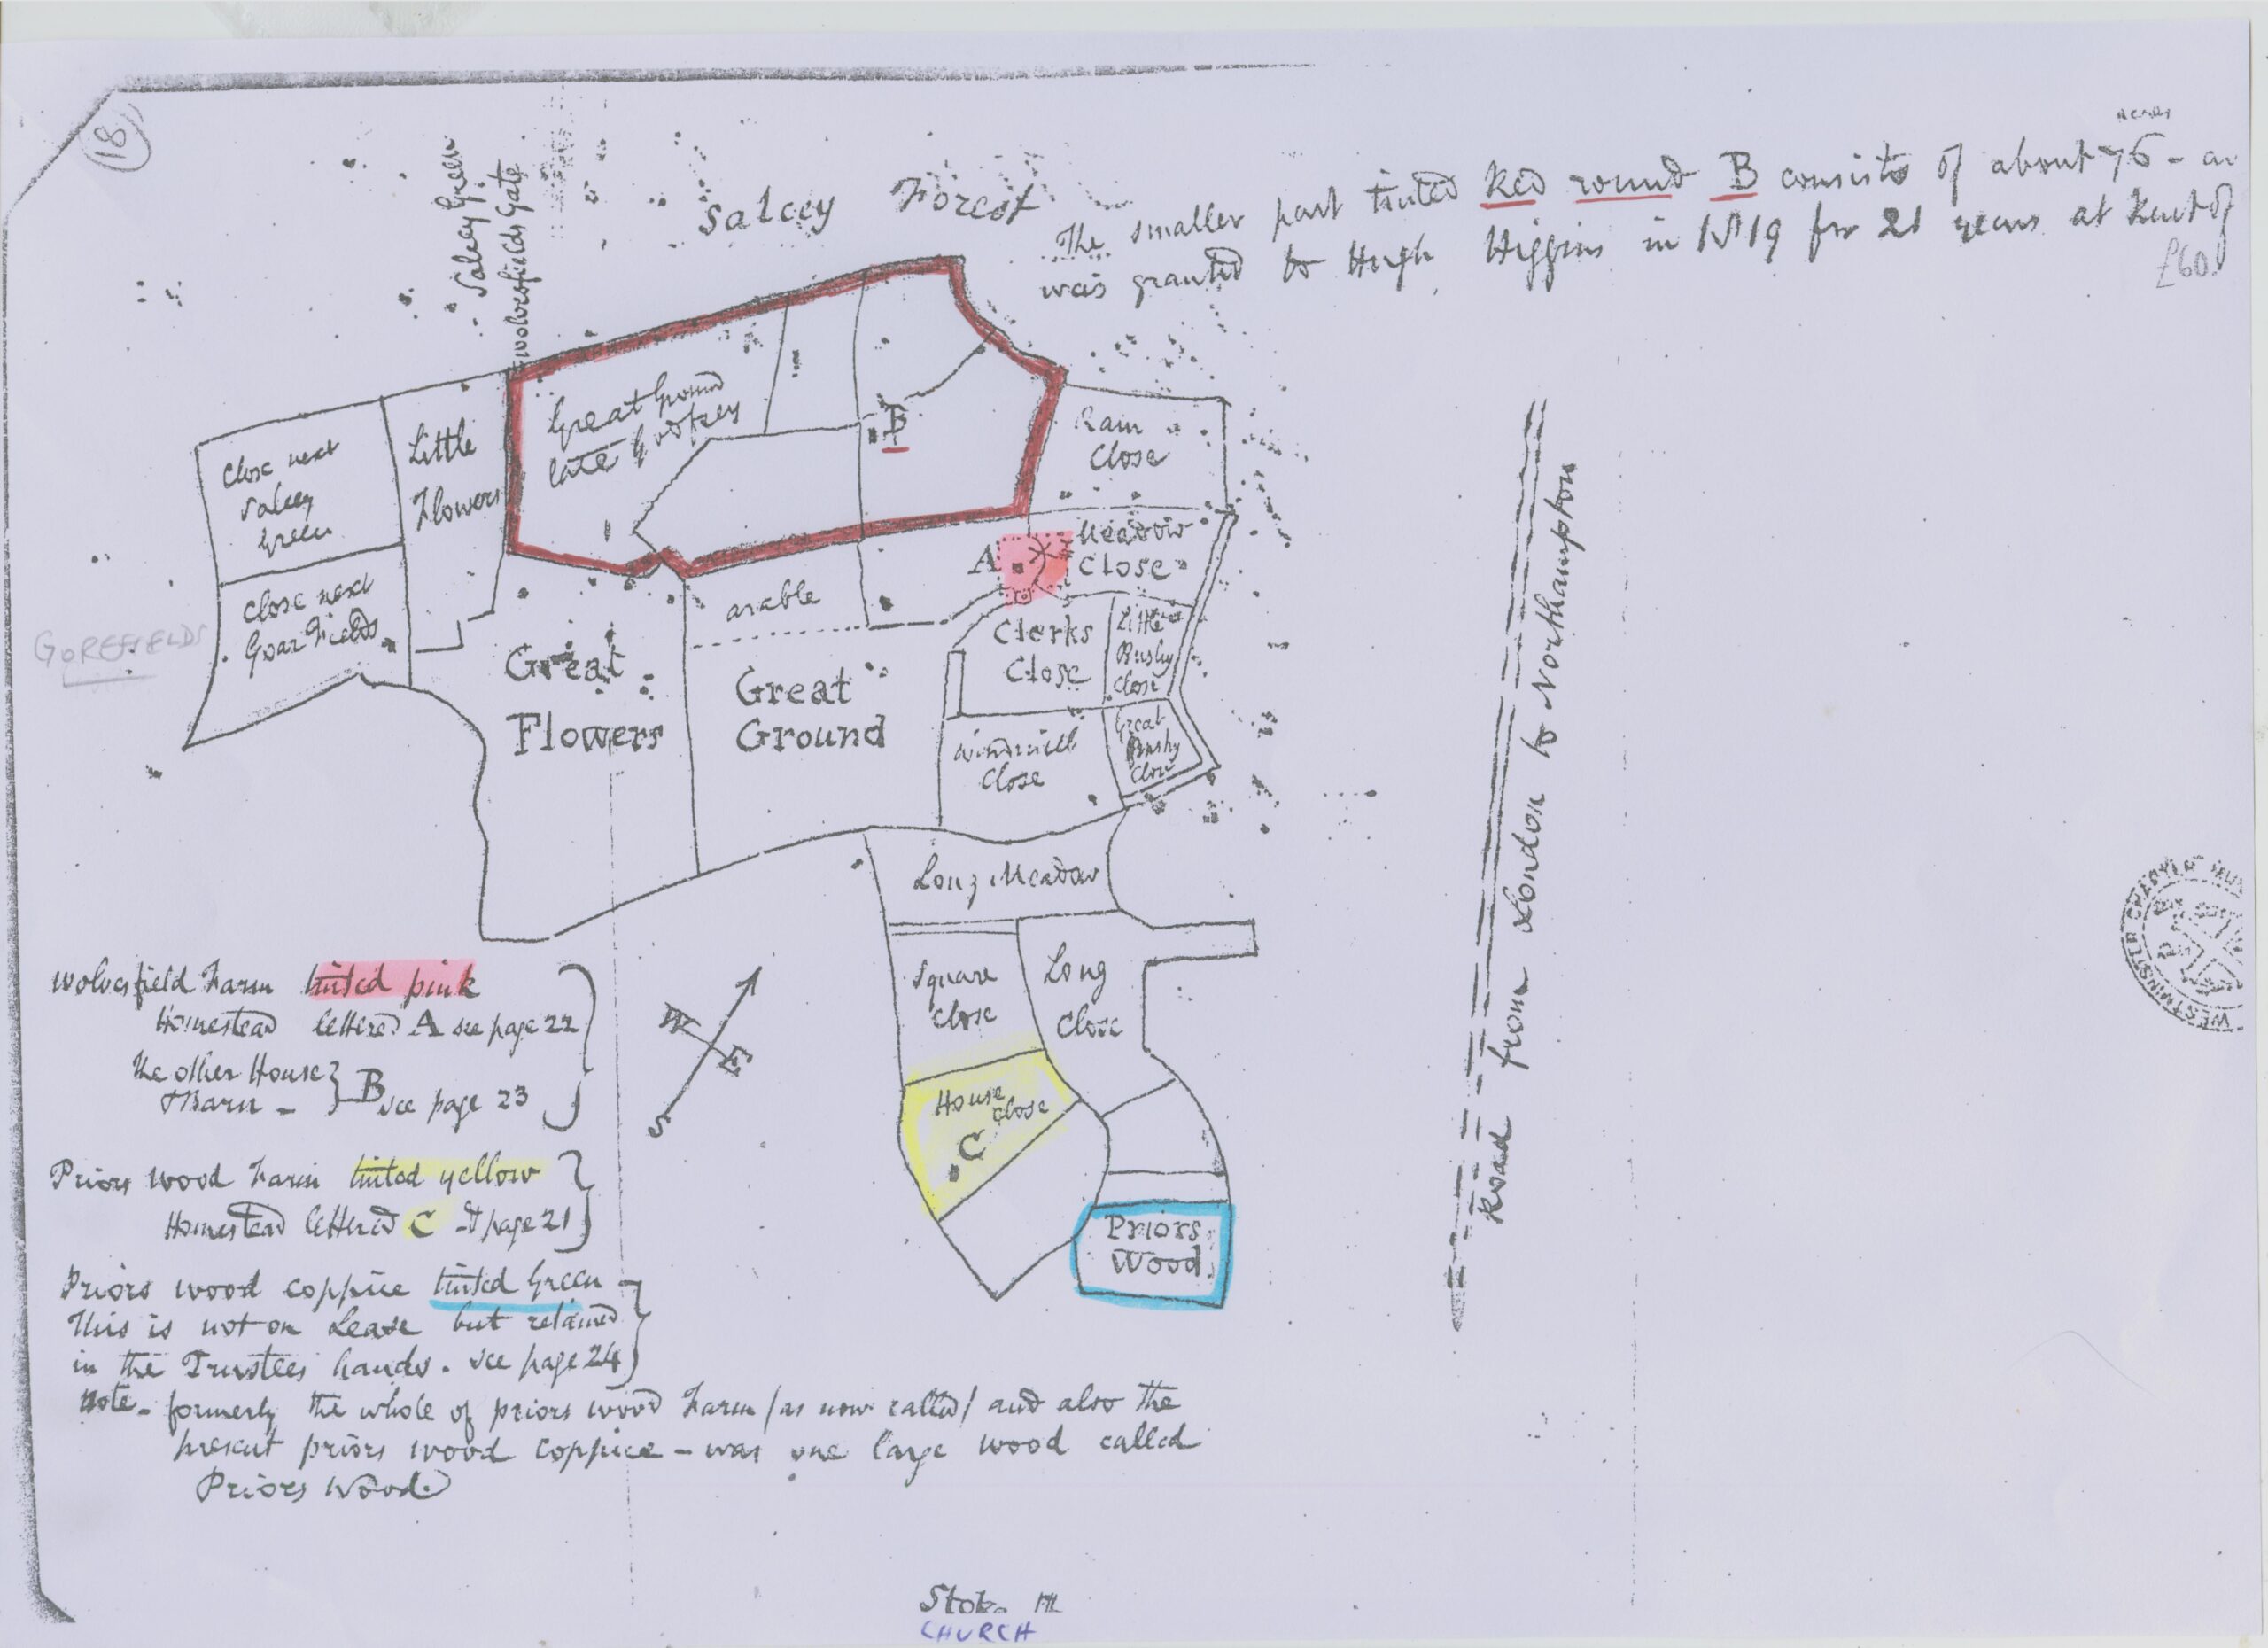 18
Salcey Green
Wolversfields Gate
Salcey Forest
acres
The smaller part tinted Red round B consists of about 76 -
was granted to Hugh Higgins in 1819 for 21 years at Rent of
£60.
Great Ground
late Godfrey
B
Close next
Salcey
Green
Little
Flowers
Ram
Close
A
Meadow
Close
Close next
Goar Fields
GOREFIELDS
arable
Great
Flowers
Great
Ground
Clerks
Close
Little
Bushy
Close
Windmill
Close
Great
Bushy
Close
Road from London to Northampton
Long Meadow
Square
Close
Long
Close
House
Close
C
Priors
Wood
W
E
S
Wolvesfield Farm tinted pink
Homestead lettered A see page 22
The other House
& Barn - B see page 23
Priors wood Farm tinted yellow
Homestead lettered C - page 21
Priors wood coppice tinted Green
This is not on Lease but retained
in the Trustees hands. see page 24
Note - formerly the whole of priors wood Farm /as now called/ and also the
present priors wood coppice - was one large wood called
Priors Wood.
CHURCH
WESTMINSTER